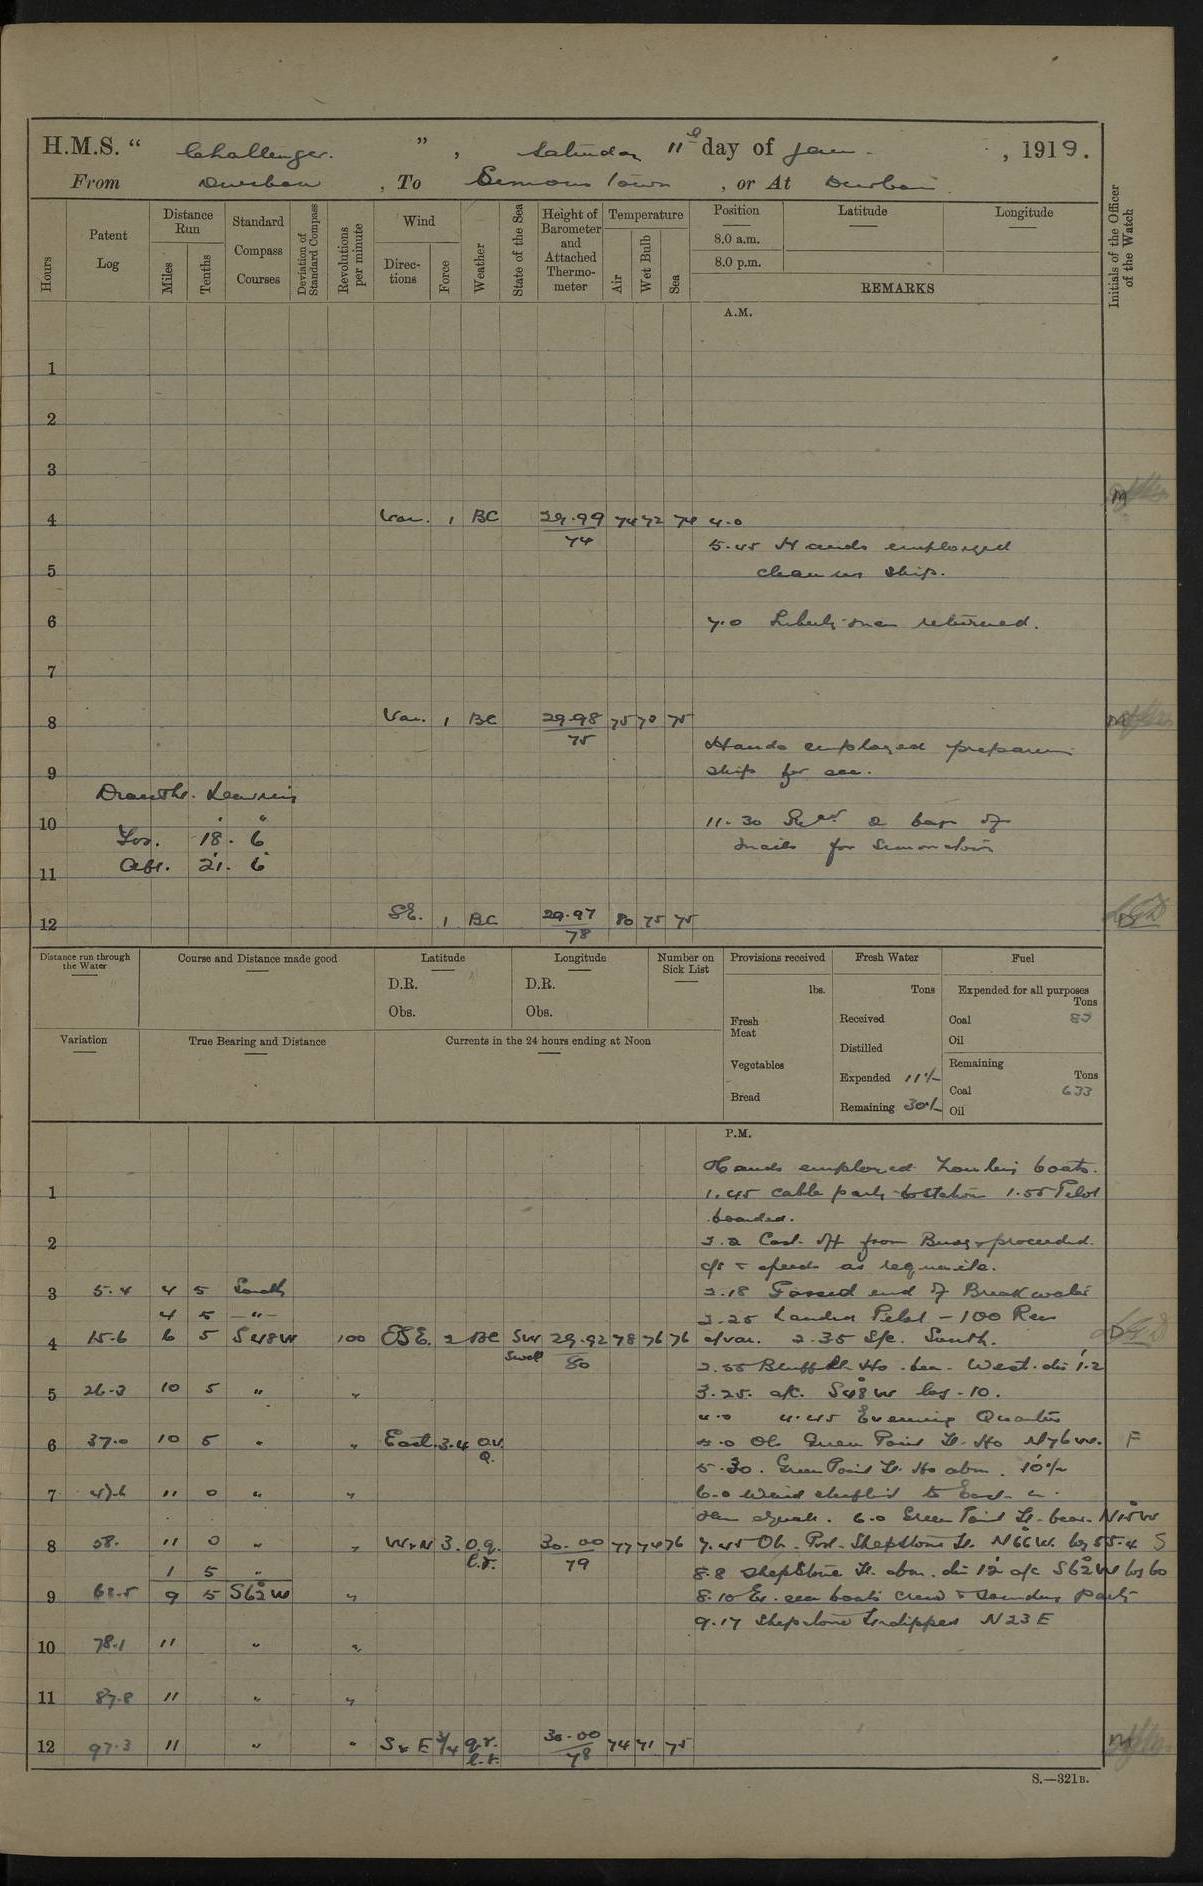 H.M.S. “ Challenger. ” , Saturday 11th day of Jan. , 1919.
From Durban , To Simons Town , or At Durban
Hours
Patent Log
Distance Run
Miles
Tenths
Standard Compass Courses
Deviation of Standard Compass
Revolutions per minute
Wind
Directions
Force
Weather
State of the Sea
Height of Barometer and Attached Thermometer
Temperature
Air
Wet Bulb
Sea
Position
8.0 a.m.
8.0 p.m.
Latitude
Longitude
REMARKS
Initials of the Officer of the Watch
A.M.
1
2
3
4 Var. 1 BC 29.99 74 72 74 4.0
74
5.45 Hands employed
5 cleaning ship.
6 7.0 Liberty men returned.
7
8 Var. 1 BC 29.98 75 70 75
75
Hands employed preparing
9 ship for sea.
Draught. Leaving
10 11.30 Recd 2 bags of
For. 18. 6
mails for Simonstown
Aft. 21. 6
11
12 SE. 1 BC 29.97 80 75 75
78
Distance run through the Water
Course and Distance made good
Latitude
D.R.
Obs.
Longitude
D.R.
Obs.
Number on Sick List
Provisions received
lbs.
Fresh Meat
Vegetables
Bread
Fresh Water
Tons
Received
Distilled
Expended 11%
Remaining 30%
Fuel
Expended for all purposes
Tons
Coal
Oil
Remaining
Tons
Coal 633
Oil
Variation
True Bearing and Distance
Currents in the 24 hours ending at Noon
P.M.
Hands employed hoisting boats.
1 1.45 cable party to station 1.55 Pilot
boarded.
2 2.2 Cast off from Buoy & proceeded.
c/s & speeds as requisite.
3 5.4 4 5 South 2.18 Passed end of Breakwater
4 5 —"— 2.25 Landed Pilot - 100 Rev
4 15.6 6 5 S48W 100 ESE. 2 BC SW Swell 29.92 78 76 76 c/var. 2.35 S/c. South.
80
2.55 Bluff Lt Ho. bea. West. dis 1.2
5 26.3 10 5 " " 3.25. a/c. S48°W log - 10.
4.0 4.45 Evening Quarters
6 37.0 10 5 " " East. 3.4 o.v. q. 5.0 Ob. Green Point Lt. Ho N76W. F
5.30. Green Point Lt. Ho abm. 10%
7 47.6 11 0 " " 6.0 Wind shifted to East
squall. 6.0 Green Point Lt. bear. N15°W
8 58. 11 0 " " WxN 3. o.q. l.r. 30.00 77 74 76 7.45 Ob. Port Shepstone Lt. N66W. log 55.4 S
79
1 5 " 8.8 Shepstone Lt. abm. dis 12' a/c S62°W log 60
9 68.5 9 5 S62°W " 8.10 Ex. sea boats crew & sounding party
9.17 Shepstone Lt dipped N23E
10 78.1 11 " "
11 87.8 11 " "
12 97.3 11 " " SxE 3/4 q.r. l.t. 30.00 74 71 75
78
S.—321B.